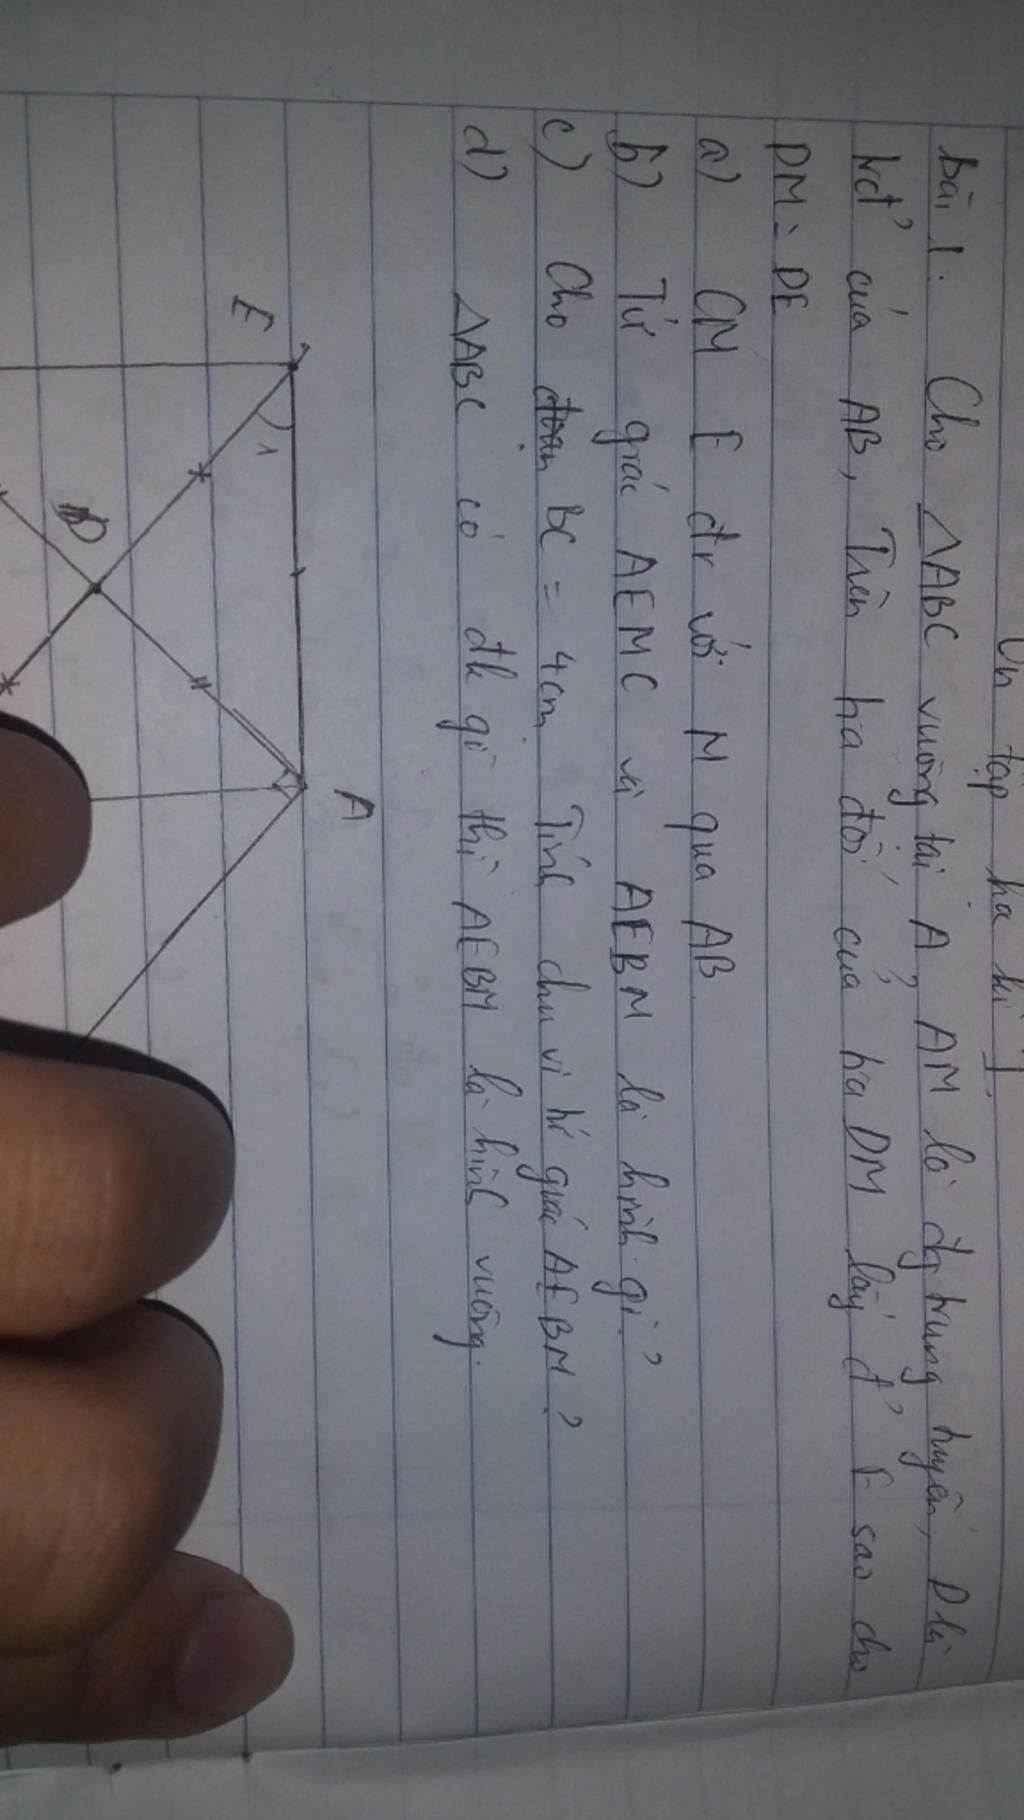 Ôn tập há kì I
Bài 1. Cho ΔABC vuông tại A, AM là đg trung tuyến, D là
trđ' của AB, Trên tia đối của tia DM lấy đ' E sao cho
DM = DE
a) CM E đx với M qua AB.
b) Tứ giác AEMC và AEBM là hình gì?
c) Cho BC = 4cm, Tính chu vi tứ giác AEBM?
d) ΔABC có đk gì thì AEBM là hình vuông.
E
1
D
A